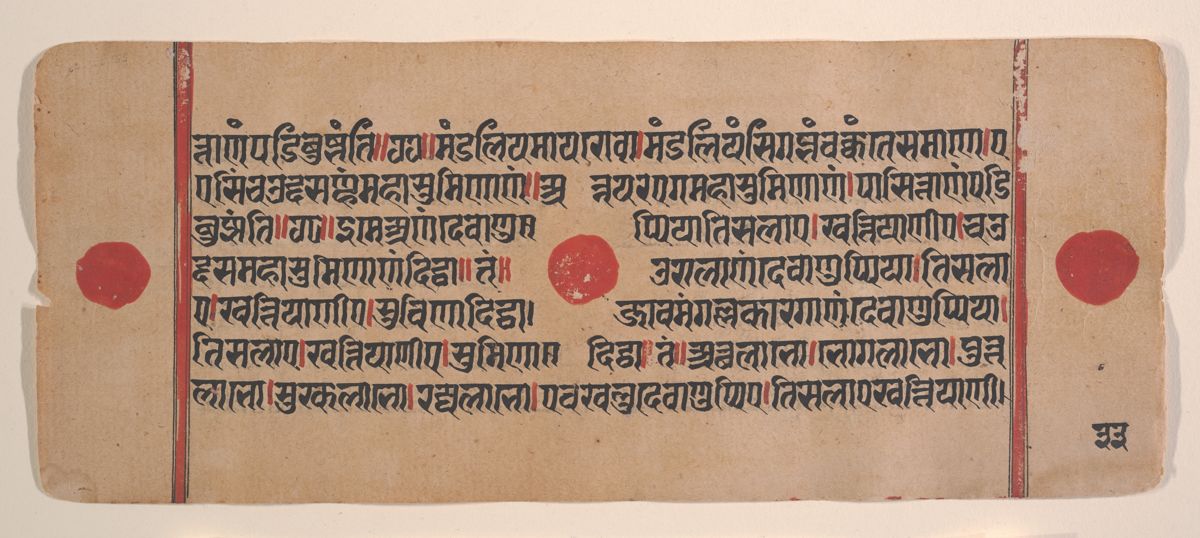 त्ताणंपडिबुज्झंति॥छ॥मंडलियमायरोवा।मंडलियंसिगब्भंवक्कंतेसमाणे।ए
एसिंचउद्दसण्हंमहासुमिणाणं॥अन्नयरएगमहासुमिणाणं।पासित्ताणंपडि
बुज्झंति॥छ॥इमेअणंदेवाणुप्पियातिसलाए।खत्तियाणीए।चउ
द्दसमहासुमिणाणंदिट्ठा॥तं॥उरालाणंदेवाणुप्पिया।तिसला
ए।खत्तियाणीए।सुविणादिट्ठा।जावमंगल्लकारगाणंदेवाणुप्पिया।
तिसलाए।खत्तियाणीए।सुमिणादिट्ठा॥तं॥अत्थलाभो।भोगलाभो।पुत्त
लाभो।सुरकलाभो।रज्जलाभो।एवखलुदेवाणुप्पिए।तिसलाएखत्तियाणी।
३३